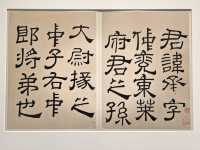 君諱承字
仲兖東萊
府君之孫
大尉掾之
中子右中
郎將弟也